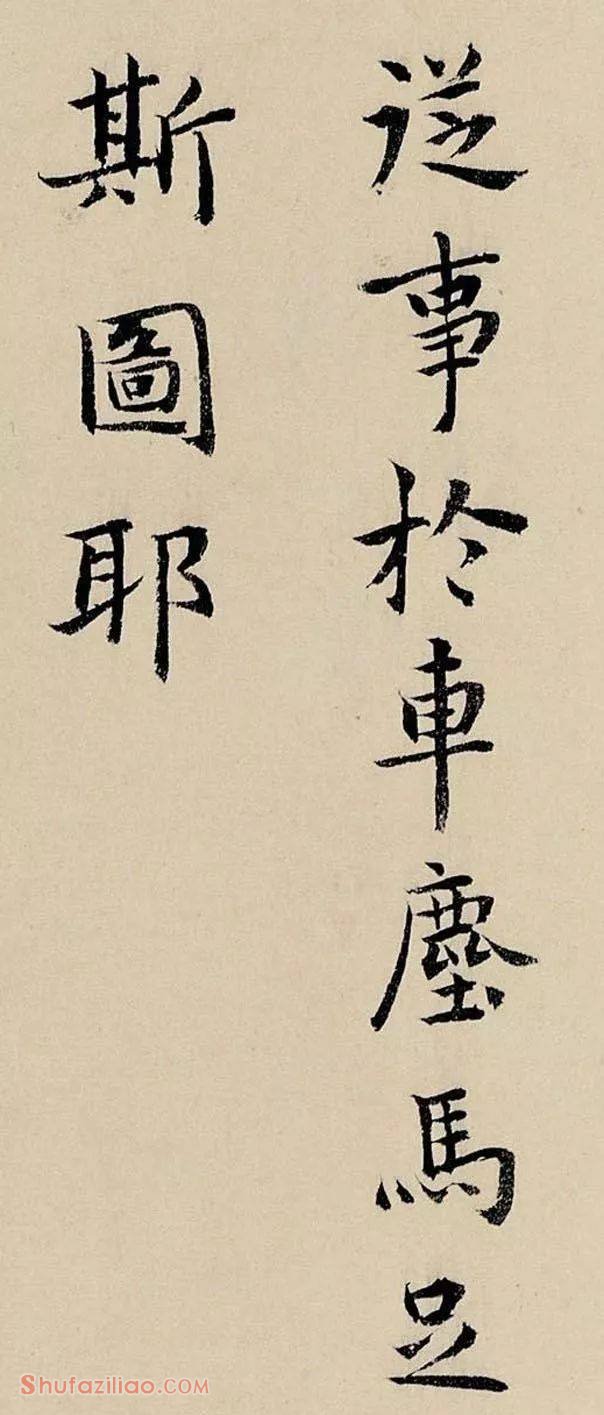 從事於車塵馬足
斯圖耶
Shufaziliao.COM